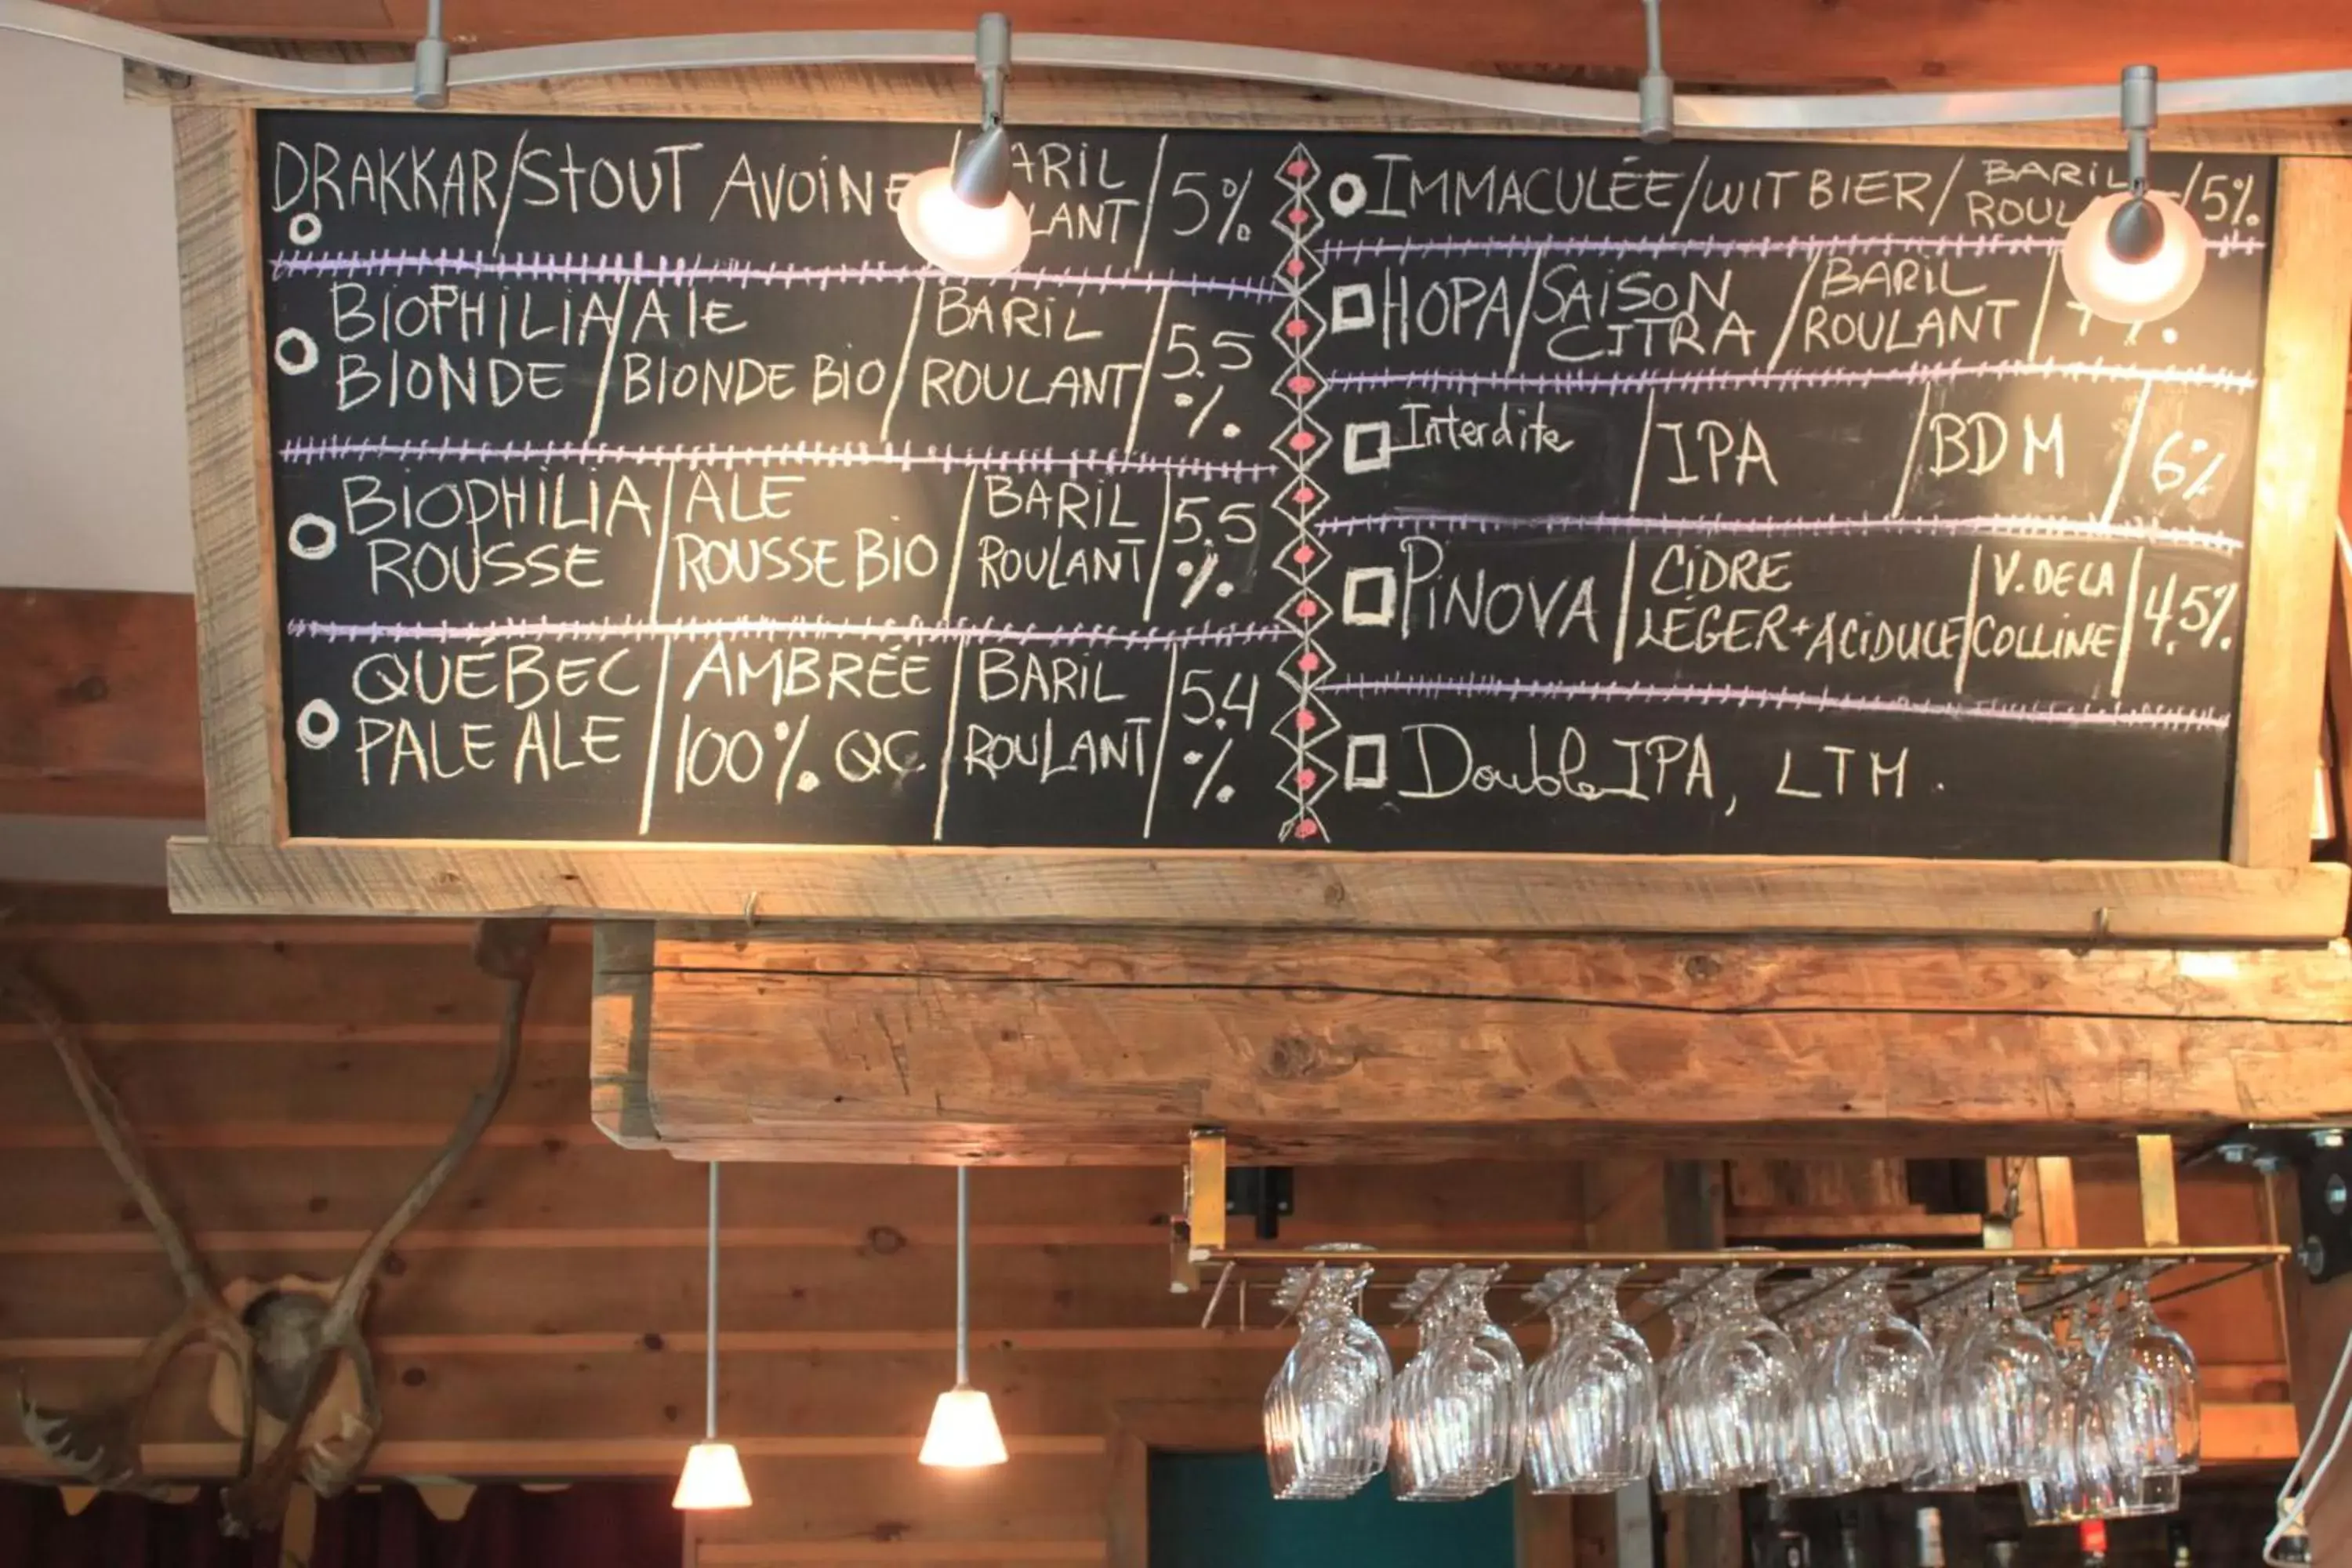 DRAKKAR/STOUT AVOINE
LANT/5%
BIOPHILIA/ALE/BARIL/5.5
BLONDE/BLONDE BIO/ROULANT/%
BIOPHILIA/ALE/BARIL/5.5
ROUSSE/ROUSSE BIO/ROULANT/%
QUÉBEC/AMBRÉE/BARIL/5.4
PALE ALE/100% QC/ROULANT/%
IMMACULÉE/WIT BIER/BARIL/5%
HOPA/SAISON/BARIL
CITRA/ROULANT
Interdite/IPA/BDM/6%
PINOVA/CIDRE/V. DE LA/4,5%
LÉGER+ACIDULÉ/COLLINE
Double IPA, LTM.